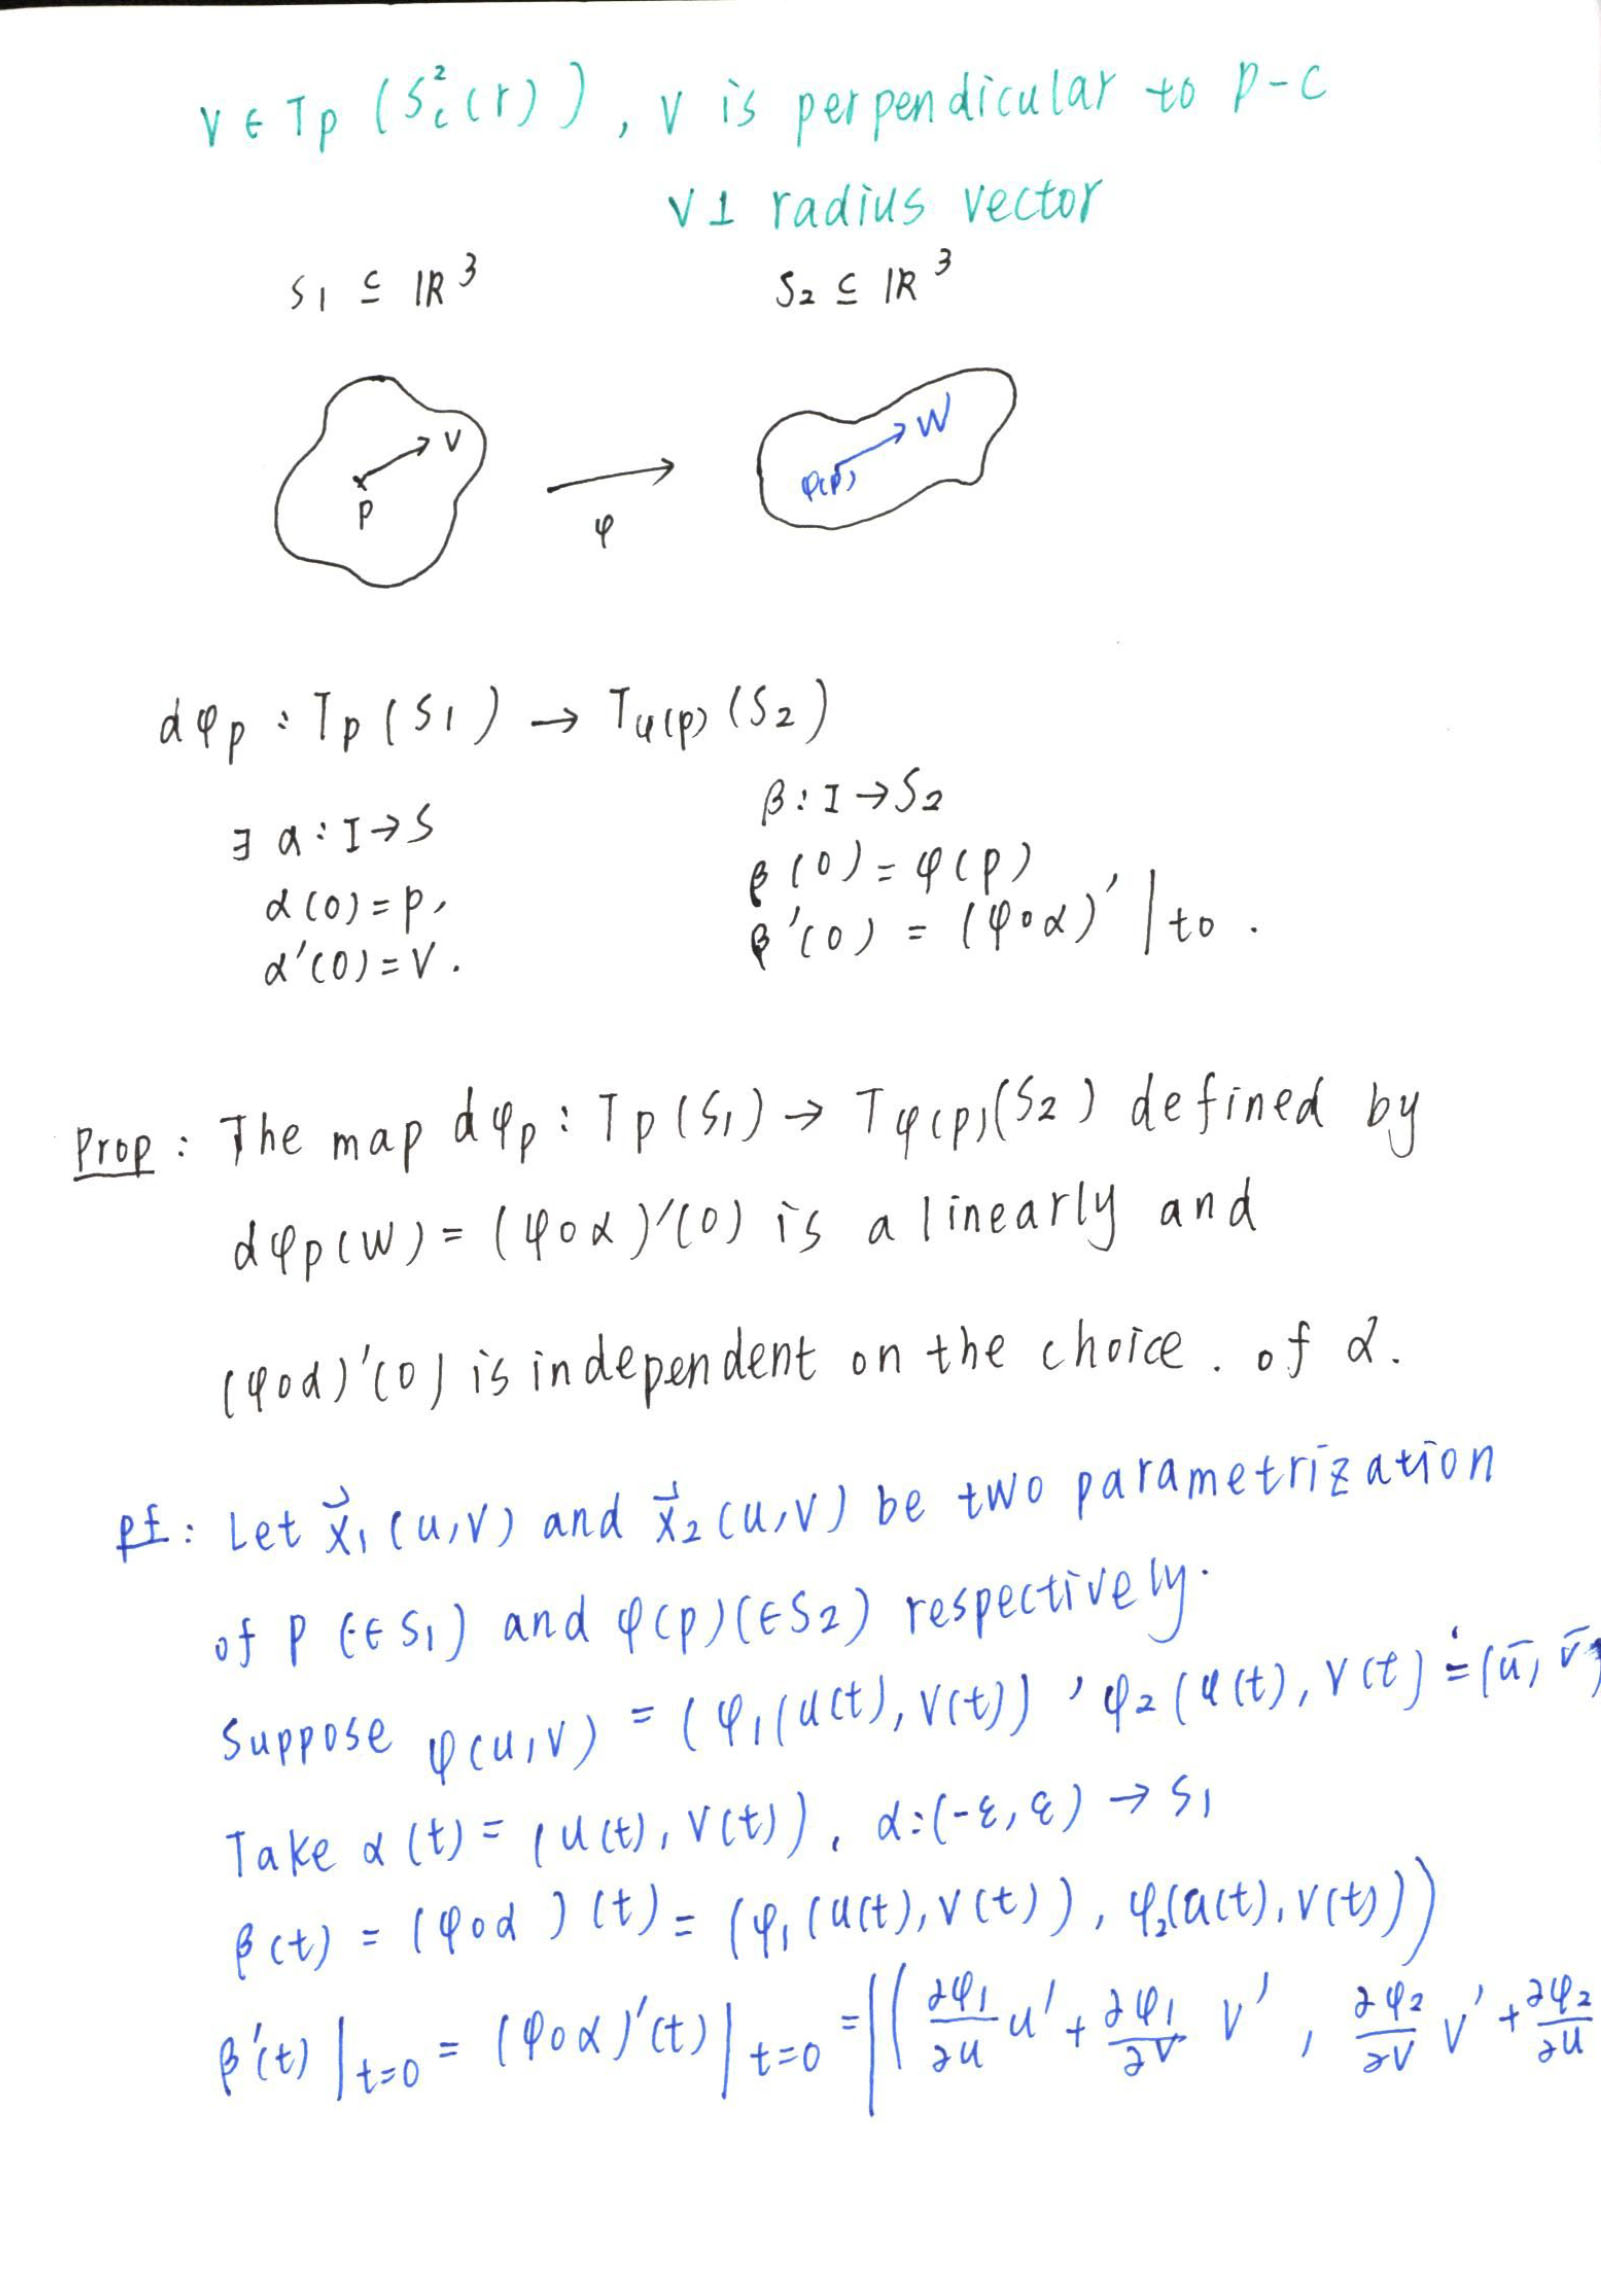 v ∈ Tp (S²c(r)), v is perpendicular to p-c
v ⊥ radius vector
S1 ⊆ ℝ³ S2 ⊆ ℝ³
v W
p φ(p)
φ
dφp : Tp(S1) → Tφ(p)(S2)
β : I → S2
∃ α : I → S
β(0) = φ(p)
α(0) = p,
β'(0) = (φ∘α)'|t0.
α'(0) = V.
Prop : The map dφp : Tp(S1) → Tφ(p)(S2) defined by
dφp(W) = (φ∘α)'(0) is a linearly and
(φ∘α)'(0) is independent on the choice. of α.
pf : Let x⃗1(u,v) and x⃗2(u,v) be two parametrization
of P (∈ S1) and φ(p)(∈ S2) respectively.
Suppose φ(u,v) = (φ1(u(t), v(t)), φ2(u(t), v(t) ≐ (ū, v̄)
Take α(t) = (u(t), v(t)), α:(-ε, ε) → S1
β(t) = (φ∘α)(t) = (φ1(u(t), v(t)), φ2(u(t), v(t)))
β'(t)|t=0 = (φ∘α)'(t)|t=0 = |(∂φ1/∂u u' + ∂φ1/∂v v', ∂φ2/∂v v' + ∂φ2/∂u